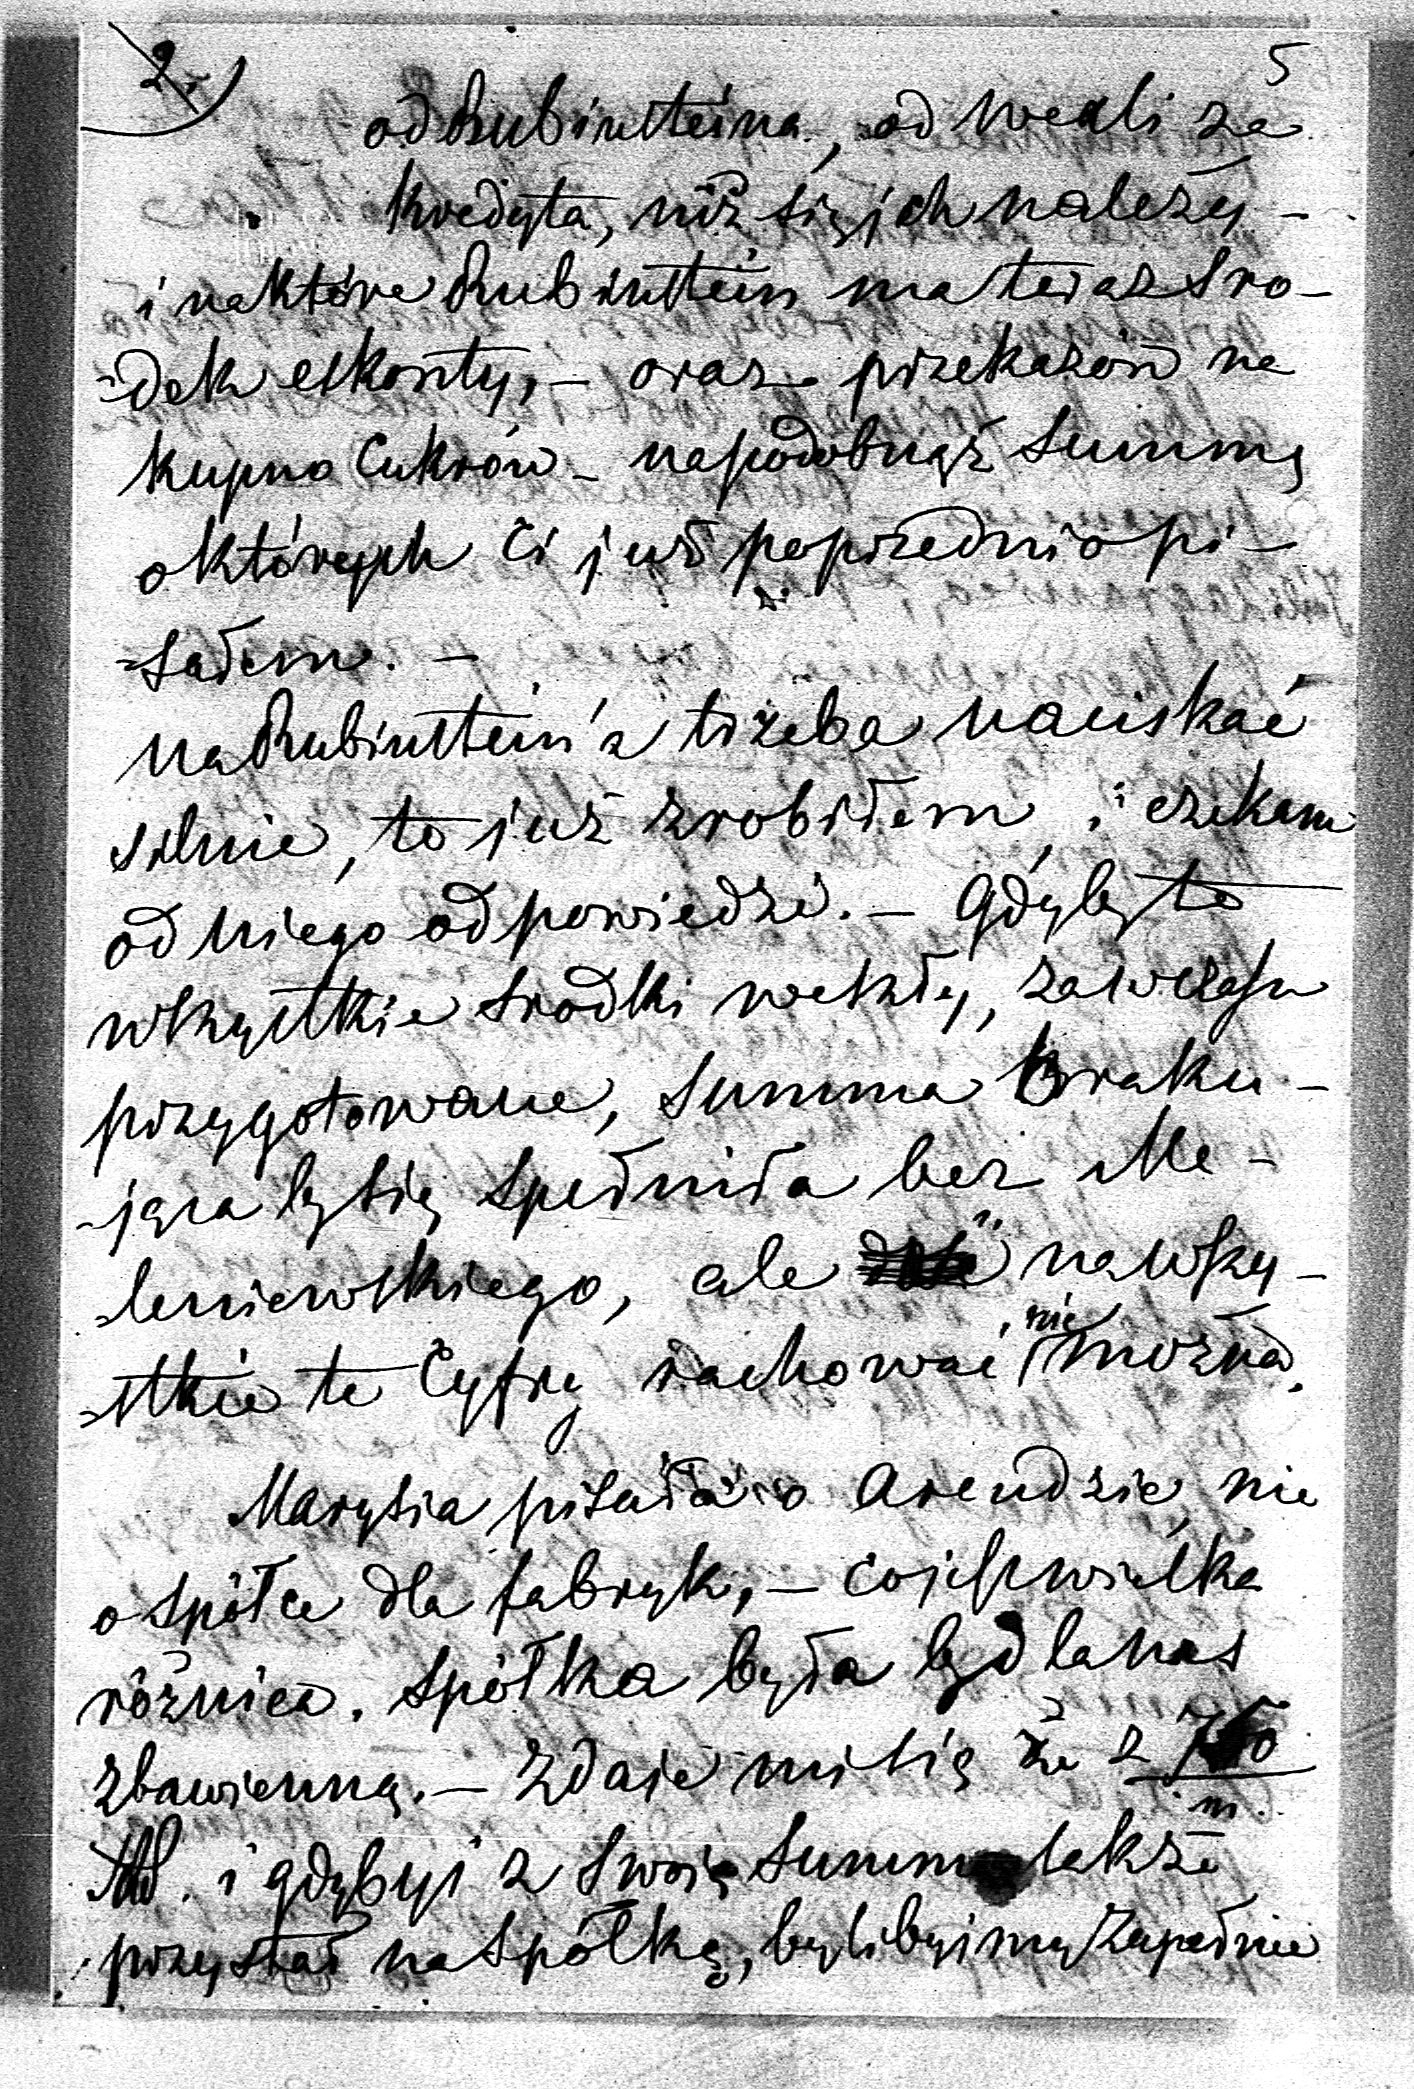 2.) 5
od Rubinsteina, od weksli za
kredyta, niż się ich należy –
i na które Rubinstein ma teraz śro-
-dek eskonty, – oraz przekazów na
kupno Cukrów – na podobnąż Summę
o których Ci już poprzednio pi-
-sałem. –
na Rubinstein'a trzeba naciskać
silnie, to już zrobiłem, i czekam
od niego odpowiedzi. – Gdyby to
wszystkie środki weszły, zawczasu
przygotowane, Summa braku-
-jąca by się spełniła bez Me-
-leniewskiego, ale na wszy-
-stkie te Cyfry rachować nie można.
Marysia pisała o Arendzie, nie
o spółce dla fabryk, – co jest wielka
różnica. Spółka była by dla nas
zbawienną. – Zdaje mi się że z
m.
i gdybyś z swoją Summą także
przystał na Spółkę, bylibyśmy zupełnie